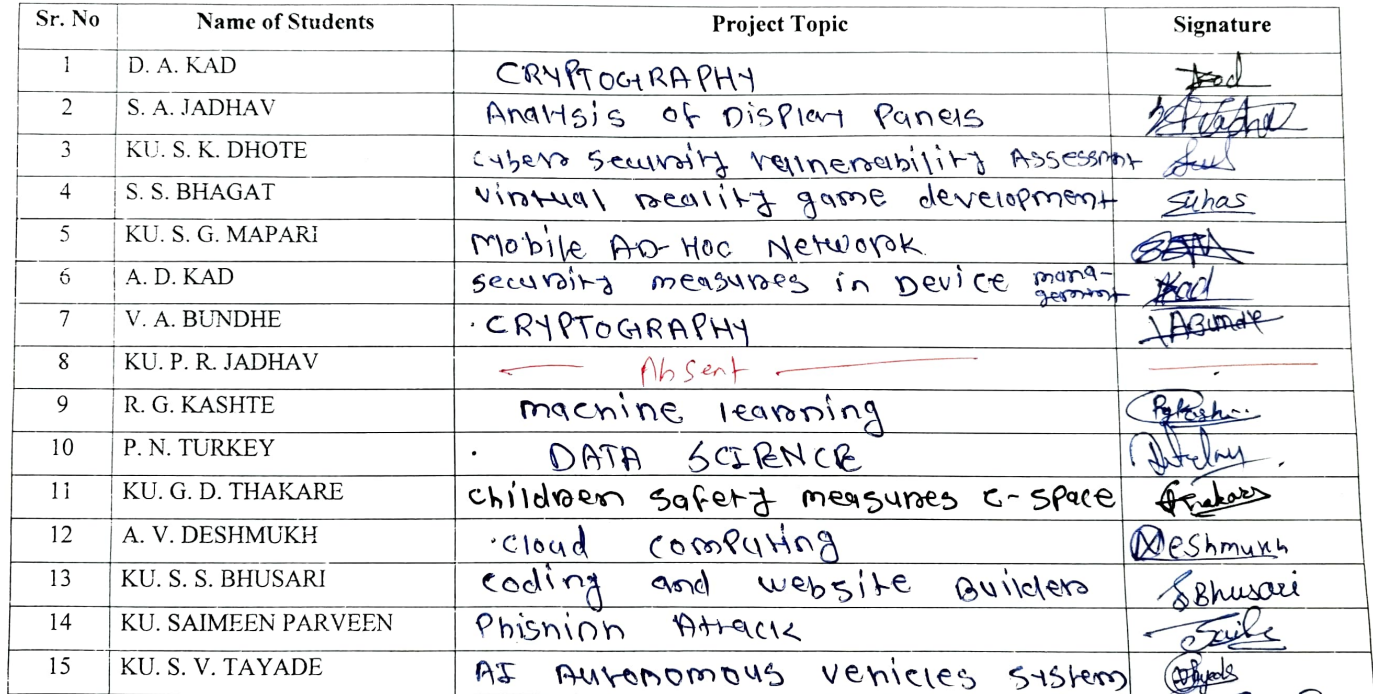 Sr. No Name of Students Project Topic Signature
1 D. A. KAD CRYPTOGRAPHY Kad
2 S. A. JADHAV Analysis of Display Panels
3 KU. S. K. DHOTE cyber security vulnerability Assessmnt
4 S. S. BHAGAT virtual reality game development Suhas
5 KU. S. G. MAPARI Mobile AD-Hoc Network
6 A. D. KAD security measures in Device mana-
gemmt Kad
7 V. A. BUNDHE CRYPTOGRAPHY
8 KU. P. R. JADHAV Absent
9 R. G. KASHTE machine learning
10 P. N. TURKEY DATA SCIENCE
11 KU. G. D. THAKARE children safety measures c-space
12 A. V. DESHMUKH cloud computing Deshmukh
13 KU. S. S. BHUSARI coding and website Builder SBhusari
14 KU. SAIMEEN PARVEEN Phishinn Attack
15 KU. S. V. TAYADE AI Autonomous vehicles system